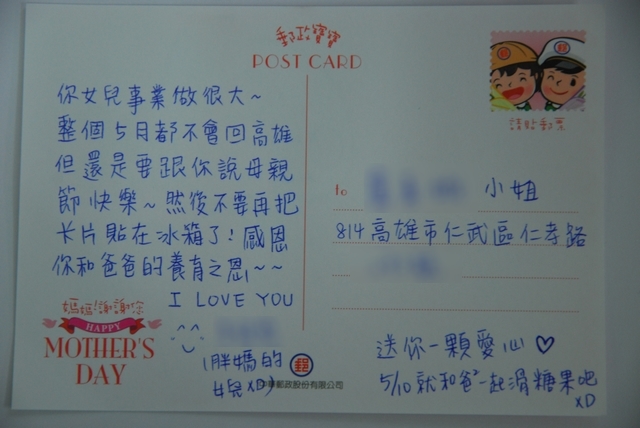 郵政寶寶
POST CARD
請貼郵票
你女兒事業做很大~
整個5月都不會回高雄
但還是要跟你說母親
節快樂~然後不要再把
卡片貼在冰箱了!感恩
你和爸爸的養育之恩~~
I LOVE YOU
(胖媽的
女兒XD)
媽媽!謝謝您
HAPPY
MOTHER'S
DAY
中華郵政股份有限公司
to 小姐
814高雄市仁武區仁孝路
送你一顆愛心♡
5/10就和爸²一起滑糖果吧
XD